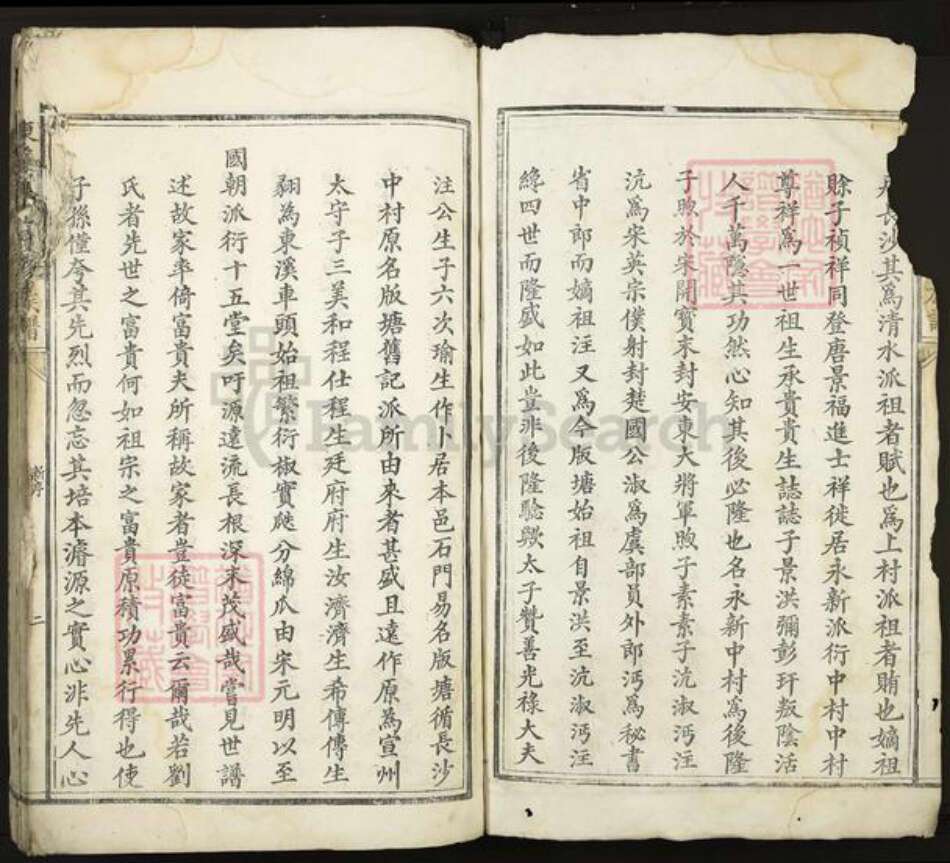 長沙其為清水派祖者賦也為上村派祖者賄也嫡祖
賖子禎祥同登唐景福進士祥徙居永新派衍中村中村
尊祥為一世祖生承貴貴生誌誌子景洪彌彭玕叛陰活
人千萬隱其功然心知其後必隆也名永新中村為後隆
子煦於宋開寶末封安東大將軍煦子素素子沆淑沔汪
沆為宋英宗僕射封楚國公淑為虞部員外郎沔為秘書
省中郎而嫡祖汪又為今版塘始祖自景洪至沆淑沔汪
纔四世而隆盛如此豈非後隆驗歟太子贊善光祿大夫
注公生子六次瑜生作卜居本邑石門易名版塘循長沙
中村原名版塘舊記派所由來者甚盛且遠作原為宣州
太守子三美和程仕程生廷府府生汝濟濟生希傅傅生
翱為東溪車頭始祖繁衍椒實瓞分綿瓜由宋元明以至
國朝派衍十五堂矣吁源遠流長根深末茂盛哉嘗見世譜
述故家率倚富貴夫所稱故家者豈徒富貴云爾哉若劉
氏者先世之富貴何如祖宗之富貴原積功累行得也使
子孫僅夸其先烈而忽忘其培本濬源之實心非先人心
族譜
二
FamilySearch